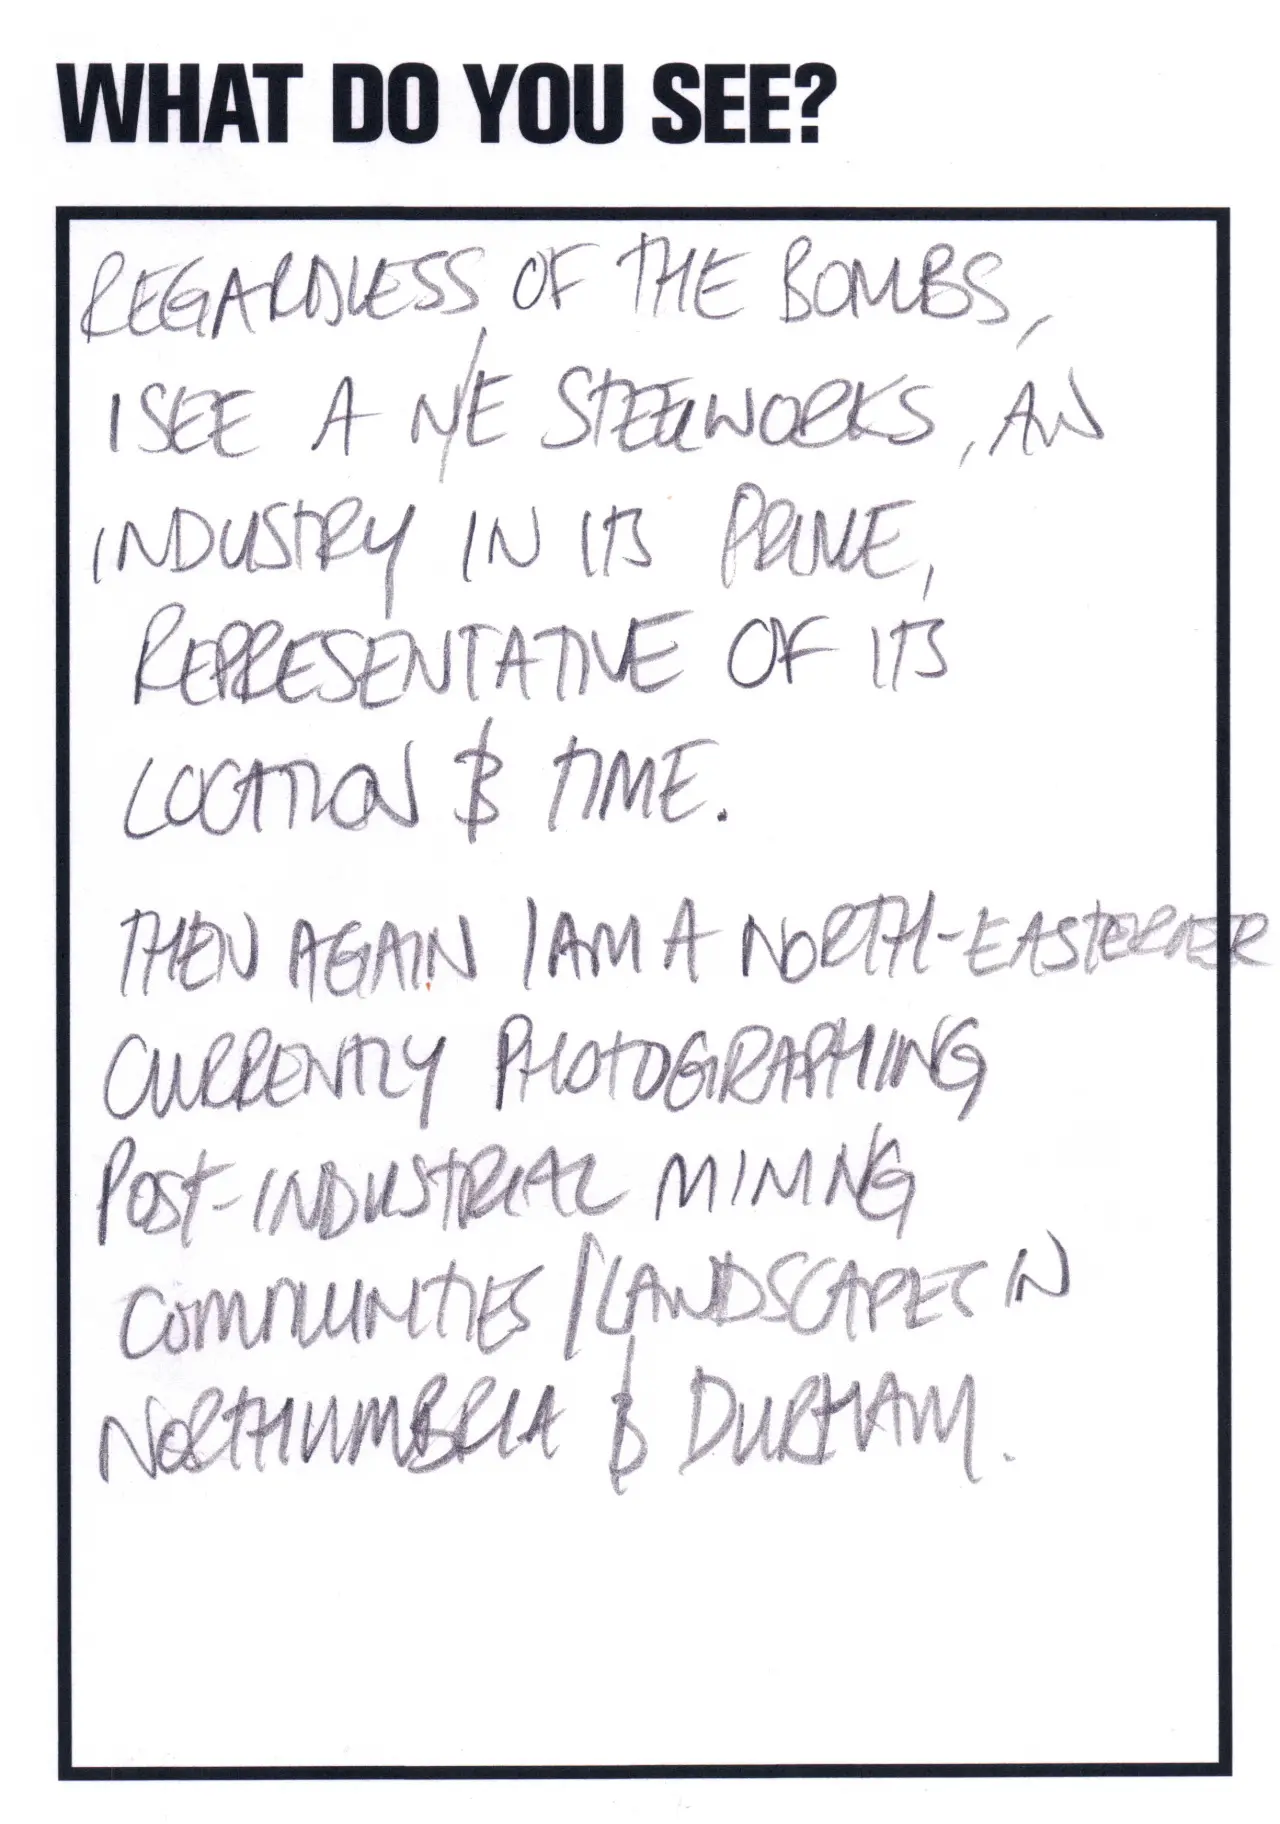 WHAT DO YOU SEE?
REGARDLESS OF THE BOMBS,
I SEE A N/E STEELWORKS, AN
INDUSTRY IN ITS PRIME,
REPRESENTATIVE OF ITS
LOCATION & TIME.
THEN AGAIN I AM A NORTH-EASTERNER
CURRENTLY PHOTOGRAPHING
POST-INDUSTRIAL MINING
COMMUNITIES / LANDSCAPES IN
NORTHUMBRIA & DURHAM.